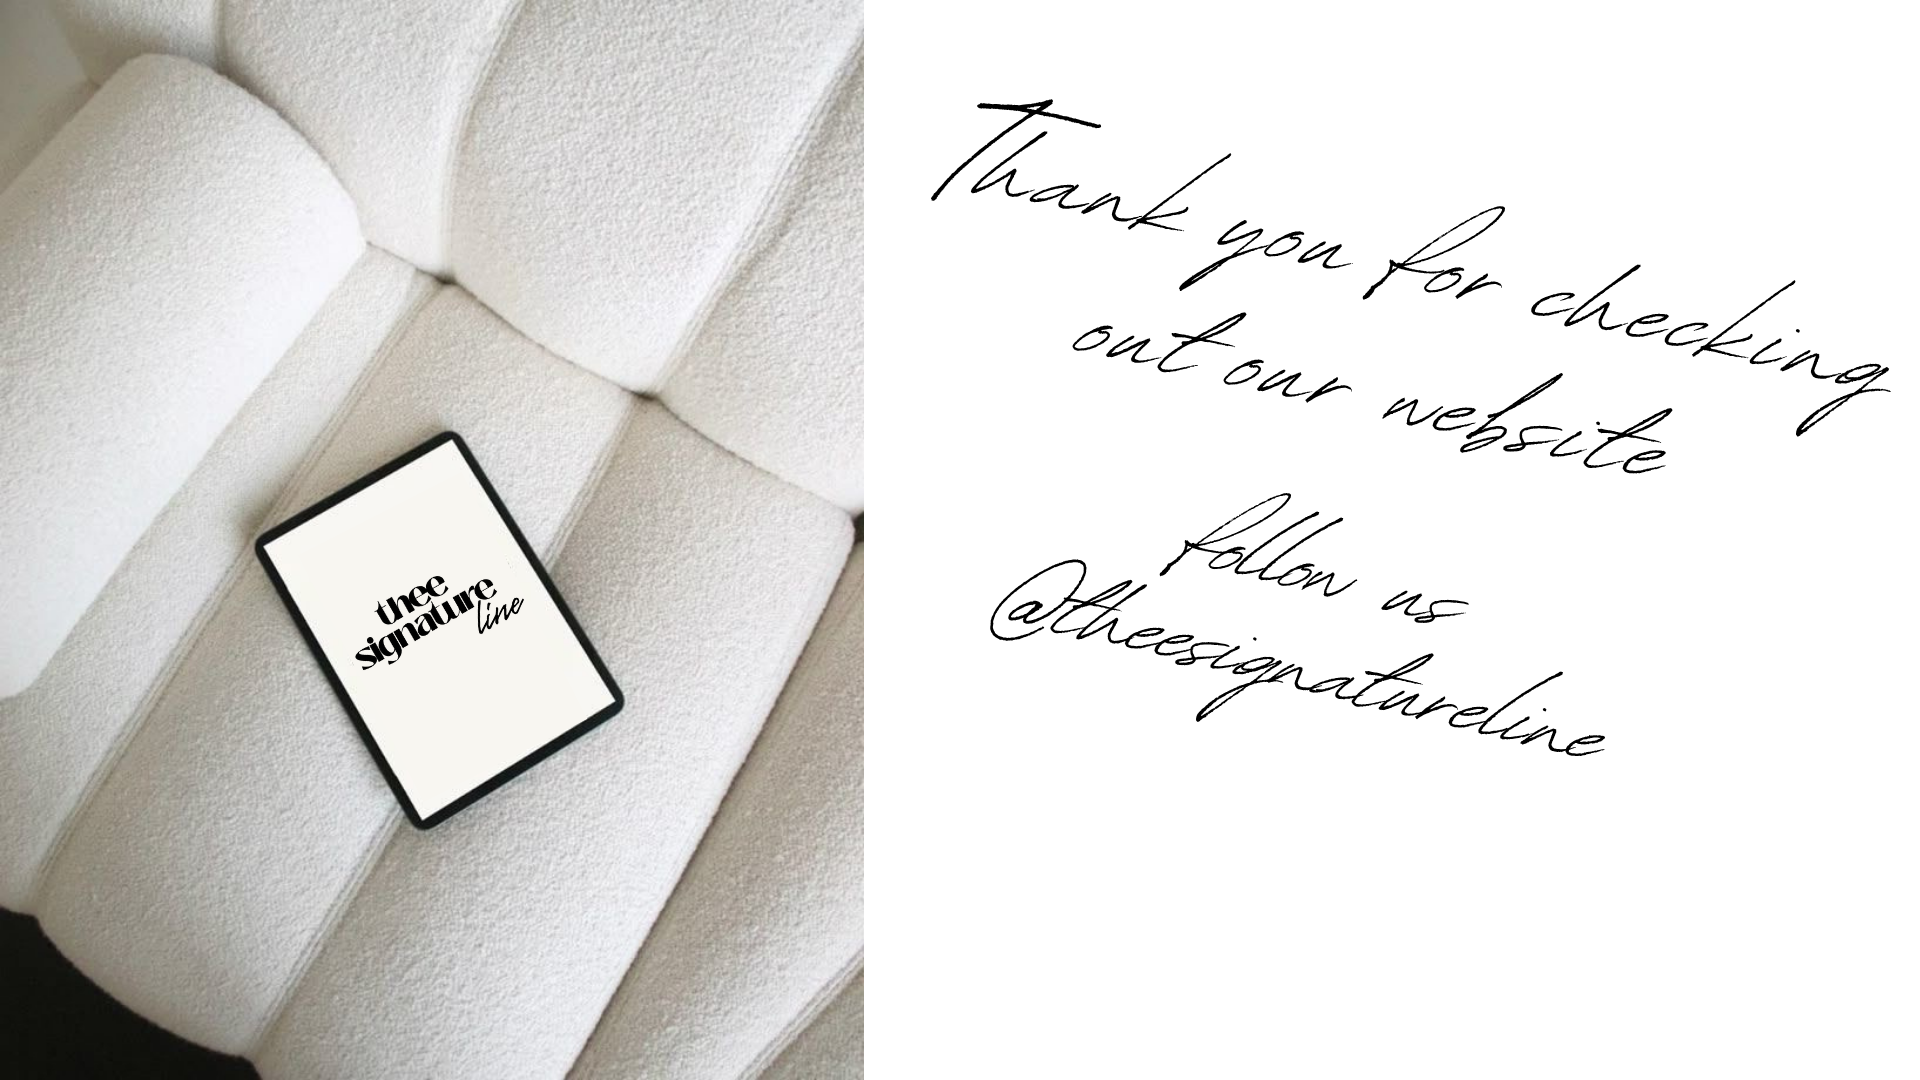 thee
signature
line
Thank you for checking
out our website
follow us
@theesignatureline